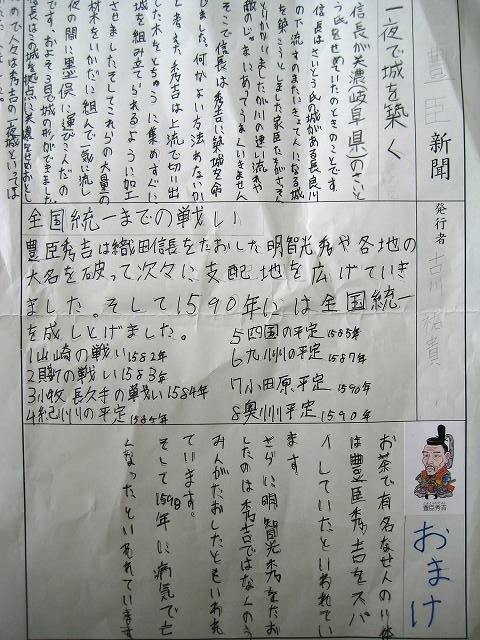 豊臣 新聞
発行者 古川 祐貴
一夜で城を築く
信長が美濃(岐阜県)のさいと
う氏をせめていたときのことです。
信長はさいとう氏の城がある長良川
の下流すのまたにきってんになる城
を築こうとしました。家臣たちがさっそく
とりかかりましたが川の速い流れや
敵のじゃまにあってうまくいきません
そこで信長は秀吉に築城を命
じました。何かよい方法はないか
と考えた秀吉は上流で切り出
した木をとちゅうに集めすぐに
城を組み立てられるように加工
させました。そしてこれらの大量の
材木をいかだに組んで一気に流し
夜の間に墨俣に運びこんだの
です。およそ3日で城の形ができました。
信長はこの城を拠点に美濃をせめおとし
ので人々は秀吉の一夜城といっては
全国統一までの戦い
豊臣秀吉は織田信長をたおした明智光秀や各地の
大名を破って次々に支配地を広げていき
ました。そして1590年には全国統一
を成しとげました。
1山崎の戦い1582年
2賤の戦い1583年
3小牧長久手の戦い1584年
4紀州の平定1585年
5四国の平定1585年
6九州の平定1587年
7小田原平定1590年
8奥州平定1590年
豊臣秀吉
おまけ
お茶で有名なせんの
は豊臣秀吉をスパ
イしていたといわれてい
ます
さらに明智光秀をたお
したのは秀吉ではなくのう
みんがたおしたともいわれ
ています。
そして1598年に病気で亡
くなったといわれています